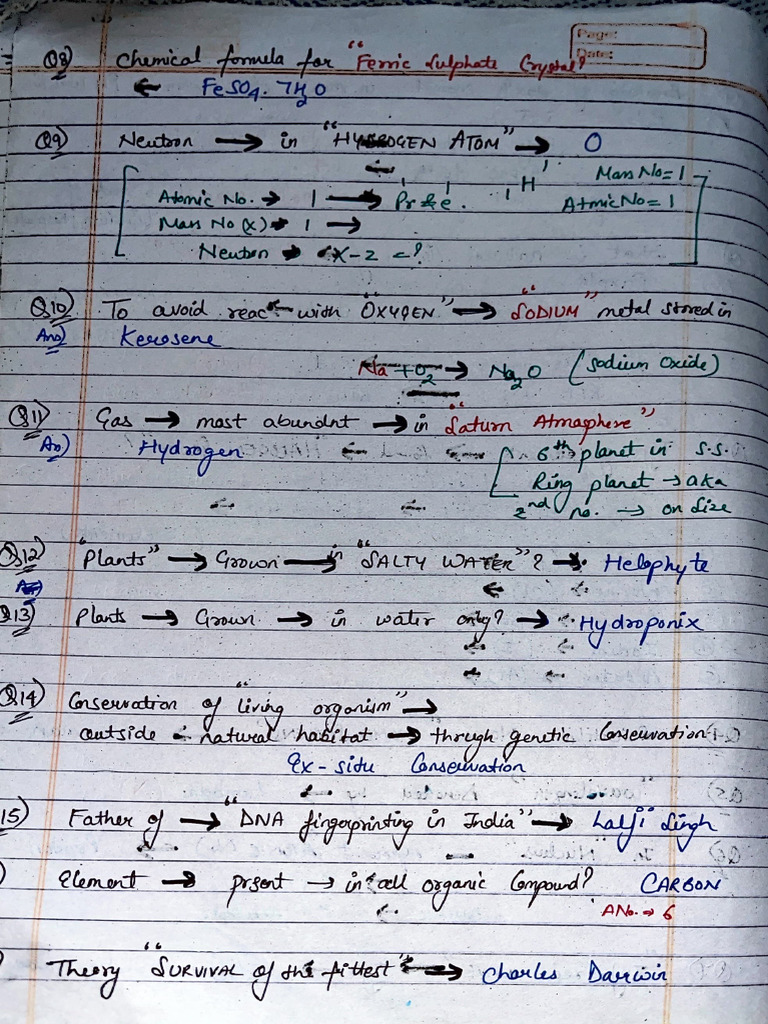 Page:
Date:
Q8) Chemical formula for "Ferric Sulphate Crystal?
FeSO4. 7H2O
Q9) Neutron → in "HYDROGEN ATOM" → O
Mass No = 1
Atomic No. → 1 → Pr & e. 1H1 AtmicNo = 1
Mass No (x) → 1 →
Neutron → X-z = ?
Q10) To avoid reac with "OXYGEN" → "SODIUM" metal stored in
Ans) Kerosene
Na + O2 → Na2O (Sodium Oxide)
Q11) Gas → most abundnt → in "Saturn Atmasphere"
An) Hydrogen
6th planet in S.S.
Ring planet → aka
2nd no. → on Size
Q12) "Plants" → Grown → in "SALTY WATER"? → Helophyte
Q13) Plants → Grown → in water only? → Hydroponix
Q14) Conservation of "living organism" →
outside natural habitat → through genetic Conservation
Ex-situ Conservation
15) Father of → "DNA fingerprinting in India" → Lalji Singh
Element → prsent → in all organic Compound? CARBON
A No. → 6
Theory "SURVIVAL of the fittest" → Charles Darwin